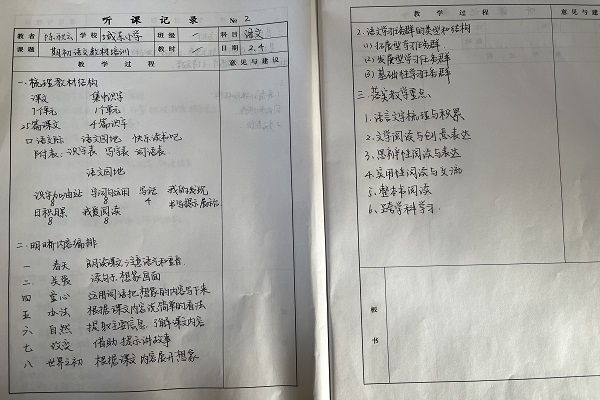 听 课 记 录 № 2
教者 学校 城东小学 班级 一 科目 语文
课题 期初语文教材培训 教时 一 日期 2.4
教 学 过 程 意见与建议
一.梳理教材结构
课文 集中识字
7个单元 1个单元
21篇课文 4篇识字
口语交际 语文园地 快乐读书吧
附表、识字表 写字表 词语表
语文园地
识字加油站 字词句运用 写话 我的发现
8 8 4 书写提示 展示台
日积月累 我爱阅读
8 8
二.明晰内容编排
一 春天 朗读课文,注意语气和重音
二 关爱 读句子 想象画面
四 童心 运用词语把想象的内容写下来
五 办法 根据课文内容说简单的看法
六 自然 提取主要信息,了解课文内容
七 改变 借助提示讲故事
八 世界之初 根据课文内容展开想象
教 学 过 程 意见与建议
2.语文学习任务群的类型和结构
(1)拓展型学习任务群
(2)发展型学习任务群
(3)基础性学习任务群
三.落实教学重点、
1.语言文字梳理与积累
2.文学阅读与创意表达
3.思辨性阅读与表达
4.实用性阅读与交流
5.整本书阅读
6.跨学科学习.
板
书